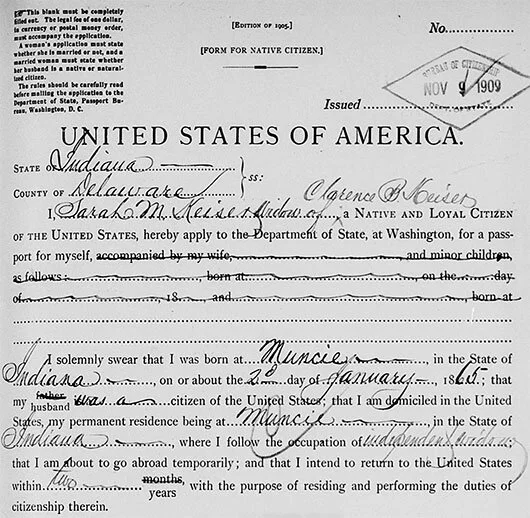 This blank must be completely
filled out. The legal fee of one dollar,
in currency or postal money order,
must accompany the application.
A woman's application must state
whether she is married or not, and a
married woman must state whether
her husband is a native or natural-
ized citizen.
The rules should be carefully read
before mailing the application to the
Department of State, Passport Bu-
reau, Washington, D. C.
[EDITION OF 1905.]
[FORM FOR NATIVE CITIZEN.]
No.
BUREAU OF CITIZENSHIP
NOV 9 1909
DEPT. OF STATE
Issued
UNITED STATES OF AMERICA.
STATE OF Indiana
COUNTY OF Delaware
ss:
Clarence B Keiser
I, Sarah M. Keiser, Widow of, a NATIVE AND LOYAL CITIZEN
OF THE UNITED STATES, hereby apply to the Department of State, at Washington, for a pass-
port for myself, accompanied by my wife, and minor children,
as follows: born at on the day
of , 18 and born at
I solemnly swear that I was born at Muncie, in the State of
Indiana, on or about the 2d day of January, 1865; that
my father was a citizen of the United States; that I am domiciled in the United
husband
States, my permanent residence being at Muncie, in the State of
Indiana, where I follow the occupation of independent widow;
that I am about to go abroad temporarily; and that I intend to return to the United States
within two months, with the purpose of residing and performing the duties of
years
citizenship therein.